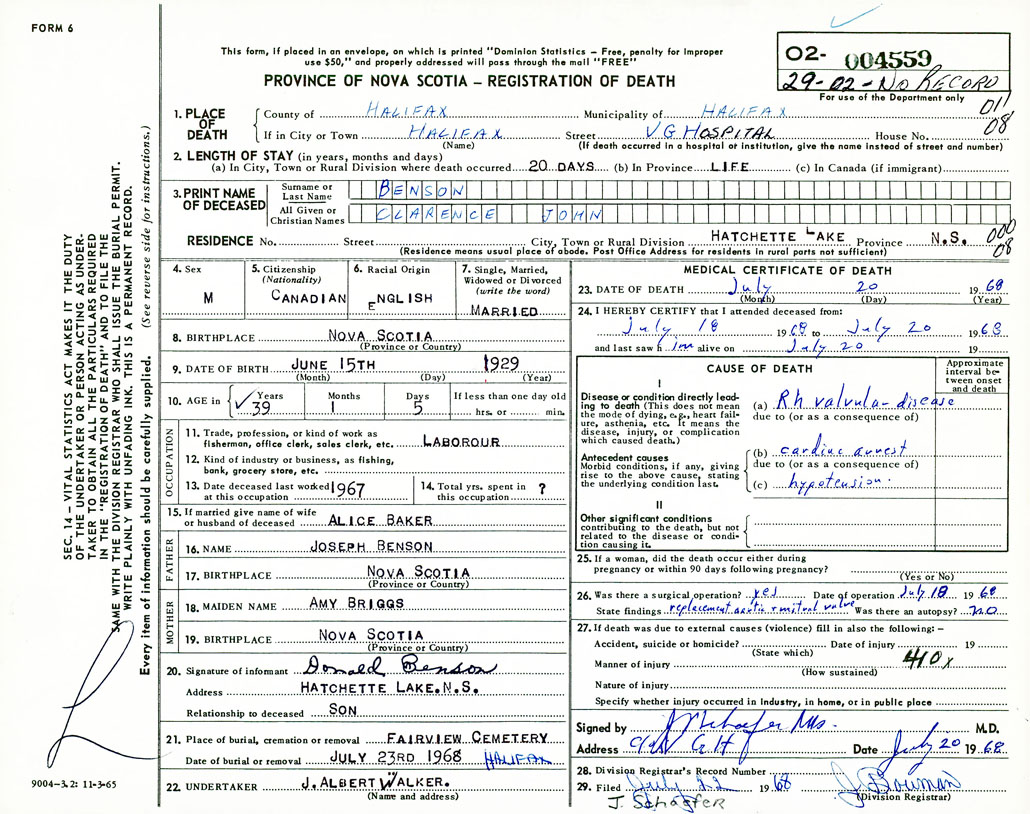 FORM 6
This form, if placed in an envelope, on which is printed "Dominion Statistics – Free, penalty for improper
use $50," and properly addressed will pass through the mail "FREE"
PROVINCE OF NOVA SCOTIA – REGISTRATION OF DEATH
02- 004559
29-02-No RECORD
For use of the Department only
011
08
1. PLACE OF DEATH
County of HALIFAX Municipality of HALIFAX
If in City or Town HALIFAX Street V G HOSPITAL House No.
(Name) (If death occurred in a hospital or institution, give the name instead of street and number)
2. LENGTH OF STAY (in years, months and days)
(a) In City, Town or Rural Division where death occurred 20 DAYS (b) In Province LIFE (c) In Canada (if immigrant)
3. PRINT NAME OF DECEASED
Surname or Last Name BENSON
All Given or Christian Names CLARENCE JOHN
RESIDENCE No. Street City, Town or Rural Division HATCHETTE LAKE Province N.S. 000
08
(Residence means usual place of abode. Post Office Address for residents in rural parts not sufficient)
4. Sex
M
5. Citizenship
(Nationality)
CANADIAN
6. Racial Origin
ENGLISH
7. Single, Married,
Widowed or Divorced
(write the word)
MARRIED
8. BIRTHPLACE NOVA SCOTIA
(Province or Country)
9. DATE OF BIRTH JUNE 15TH 1929
(Month) (Day) (Year)
10. AGE in Years 39 Months 1 Days 5 If less than one day old
hrs. or min.
OCCUPATION
11. Trade, profession, or kind of work as
fisherman, office clerk, sales clerk, etc. LABOROUR
12. Kind of industry or business, as fishing,
bank, grocery store, etc.
13. Date deceased last worked
at this occupation 1967
14. Total yrs. spent in
this occupation ?
15. If married give name of wife
or husband of deceased ALICE BAKER
FATHER
16. NAME JOSEPH BENSON
17. BIRTHPLACE NOVA SCOTIA
(Province or Country)
MOTHER
18. MAIDEN NAME AMY BRIGGS
19. BIRTHPLACE NOVA SCOTIA
(Province or Country)
20. Signature of informant Donald Benson
Address HATCHETTE LAKE. N.S.
Relationship to deceased SON
21. Place of burial, cremation or removal FAIRVIEW CEMETERY
Date of burial or removal JULY 23RD 1968 HALIFAX
22. UNDERTAKER J. ALBERT WALKER.
(Name and address)
MEDICAL CERTIFICATE OF DEATH
23. DATE OF DEATH July 20 1968
(Month) (Day) (Year)
24. I HEREBY CERTIFY that I attended deceased from:
July 18 1968 to July 20 1968
and last saw him alive on July 20 19
CAUSE OF DEATH
Approximate
interval be-
tween onset
and death
I
Disease or condition directly lead-
ing to death (This does not mean
the mode of dying, e.g., heart fail-
ure, asthenia, etc. It means the
disease, injury, or complication
which caused death.)
(a) Rh valvula- disease
due to (or as a consequence of)
Antecedent causes
Morbid conditions, if any, giving
rise to the above cause, stating
the underlying condition last.
(b) cardiac arrest
due to (or as a consequence of)
(c) hypotension.
II
Other significant conditions
contributing to the death, but not
related to the disease or condi-
tion causing it.
25. If a woman, did the death occur either during
pregnancy or within 90 days following pregnancy?
(Yes or No)
26. Was there a surgical operation? yes Date of operation July 18 1968
State findings replacement aortic & mitral valve Was there an autopsy? no
27. If death was due to external causes (violence) fill in also the following: –
Accident, suicide or homicide? Date of injury 19
(State which)
410x
Manner of injury
(How sustained)
Nature of injury
Specify whether injury occurred in Industry, in home, or in public place
Signed by M.D.
Address Date July 20 1968
28. Division Registrar's Record Number
29. Filed July 22 1968
J. Schaefer
(Division Registrar)
SEC. 14 – VITAL STATISTICS ACT MAKES IT THE DUTY
OF THE UNDERTAKER OR PERSON ACTING AS UNDER-
TAKER TO OBTAIN ALL THE PARTICULARS REQUIRED
IN THE "REGISTRATION OF DEATH" AND TO FILE THE
SAME WITH THE DIVISION REGISTRAR WHO SHALL ISSUE THE BURIAL PERMIT.
WRITE PLAINLY WITH UNFADING INK. THIS IS A PERMANENT RECORD.
Every item of information should be carefully supplied. (See reverse side for instructions.)
9004-3.2: 11-3-65